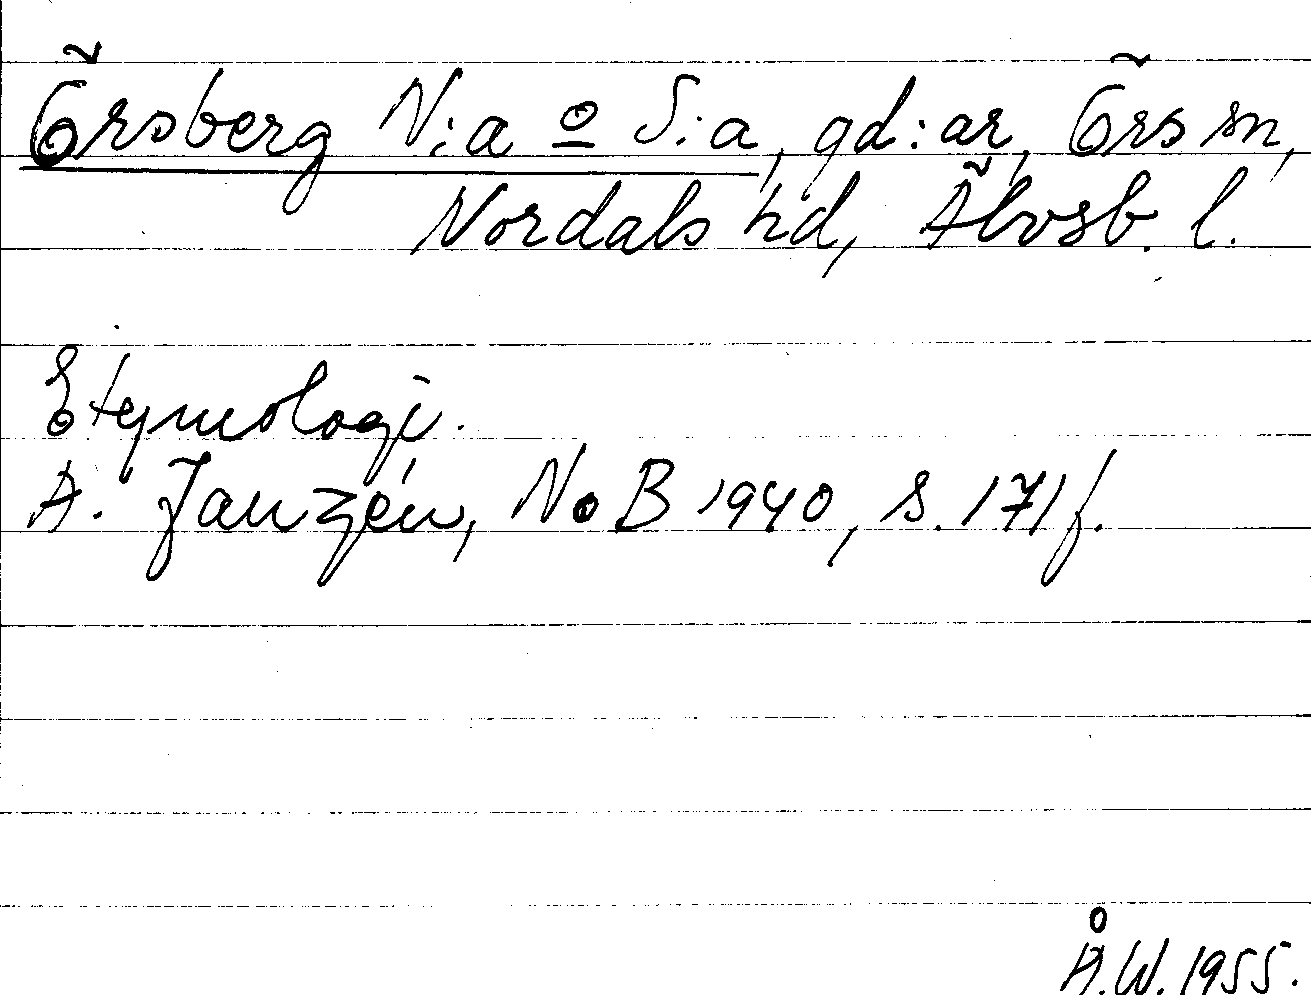 Örsberg N:a o S:a, gd:ar, Örs sn,
Nordals hd, Älvsb. l.
Etymologi.
A. Janzén, NoB 1940, s. 171 f.
Å.W. 1955.